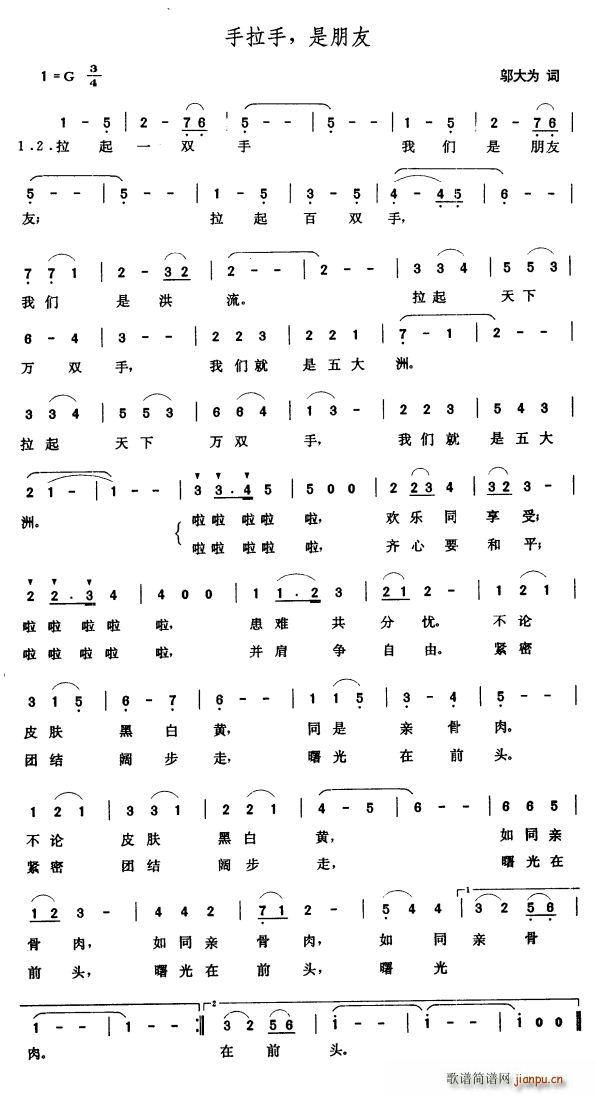 手拉手，是朋友
1=G 3/4 邬大为 词
1 - 5 | 2 - 7 6 | 5 - - | 5 - - | 1 - 5 | 2 - 7 6 |
1.2.拉 起 一 双 手 我 们 是 朋友
5 - - | 5 - - | 1 - 5 | 3 - 5 | 4 - 4 5 | 6 - - |
友； 拉 起 百 双 手，
7 7 1 | 2 - 3 2 | 2 - - | 2 - - | 3 3 4 | 5 5 3 |
我 们 是 洪 流。 拉 起 天 下
6 - 4 | 3 - - | 2 2 3 | 2 2 1 | 7 - 1 | 2 - - |
万 双 手， 我 们 就 是 五 大 洲。
3 3 4 | 5 5 3 | 6 6 4 | 1 3 - | 2 2 3 | 5 4 3 |
拉 起 天 下 万 双 手， 我 们 就 是 五 大
2 1 - | 1 - - | 3 3 . 4 5 | 5 0 0 | 2 2 3 4 | 3 2 3 - |
洲。 啦 啦 啦 啦 啦， 欢 乐 同 享 受；
啦 啦 啦 啦 啦， 齐 心 要 和 平；
2 2 . 3 4 | 4 0 0 | 1 1 . 2 3 | 2 1 2 - | 1 2 1 |
啦 啦 啦 啦 啦， 患 难 共 分 忧。 不 论
啦 啦 啦 啦 啦， 并 肩 争 自 由。 紧 密
3 1 5 | 6 - 7 | 6 - - | 1 1 5 | 3 - 4 | 5 - - |
皮 肤 黑 白 黄， 同 是 亲 骨 肉。
团 结 阔 步 走， 曙 光 在 前 头。
1 2 1 | 3 3 1 | 2 2 1 | 4 - 5 | 6 - - | 6 6 5 |
不 论 皮 肤 黑 白 黄， 如 同 亲
紧 密 团 结 阔 步 走， 曙 光 在
1 2 3 - | 4 4 2 | 7 1 2 - | 5 4 4 | 1 3 2 5 6 |
骨 肉， 如 同 亲 骨 肉， 如 同 亲 骨
前 头， 曙 光 在 前 头， 曙 光
1 - - | 1 - - :| 2 3 2 5 6 | 1 - - | 1 - - | 1 0 0 ||
肉。 在 前 头。
歌谱简谱网
jianpu.cn